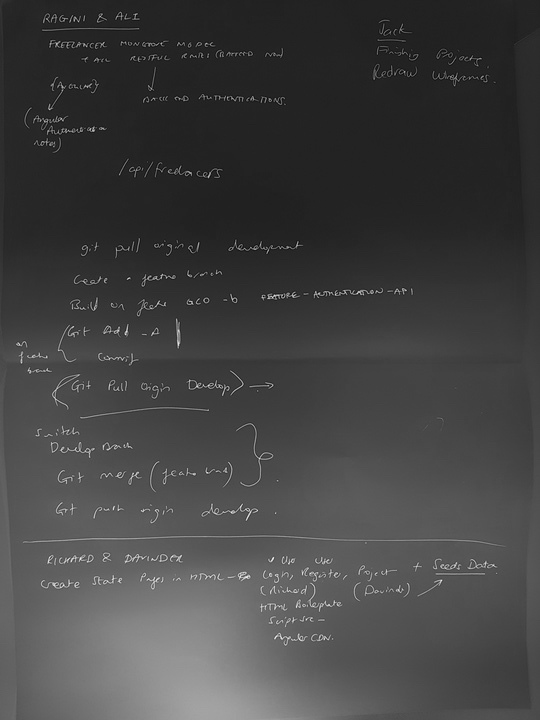 RAGINI & ALI
FREELANCER MONGOOSE MODEL
+ ALL RESTFUL ROUTES (BACKEND
BACKEND AUTHENTICATIONS.
(Angular
notes)
Jack
Finishing Projects.
Redraw Wireframes.
/api/freelancers
git pull origin development
Create a feature branch
Build on feature GCO -b FEATURE-AUTHENTICATION-API
Git Add -A
Commit
on feature branch
(Git Pull Origin Develop) →
Switch
Develop Branch
Git merge (feature branch)
Git push origin develop.
RICHARD & DAVINDER
Create State Pages in HTML -
Login, Register, Project + Seeds Data
(Richard) (Davinder)
HTML Boilerplate
Script src -
Angular CDN.